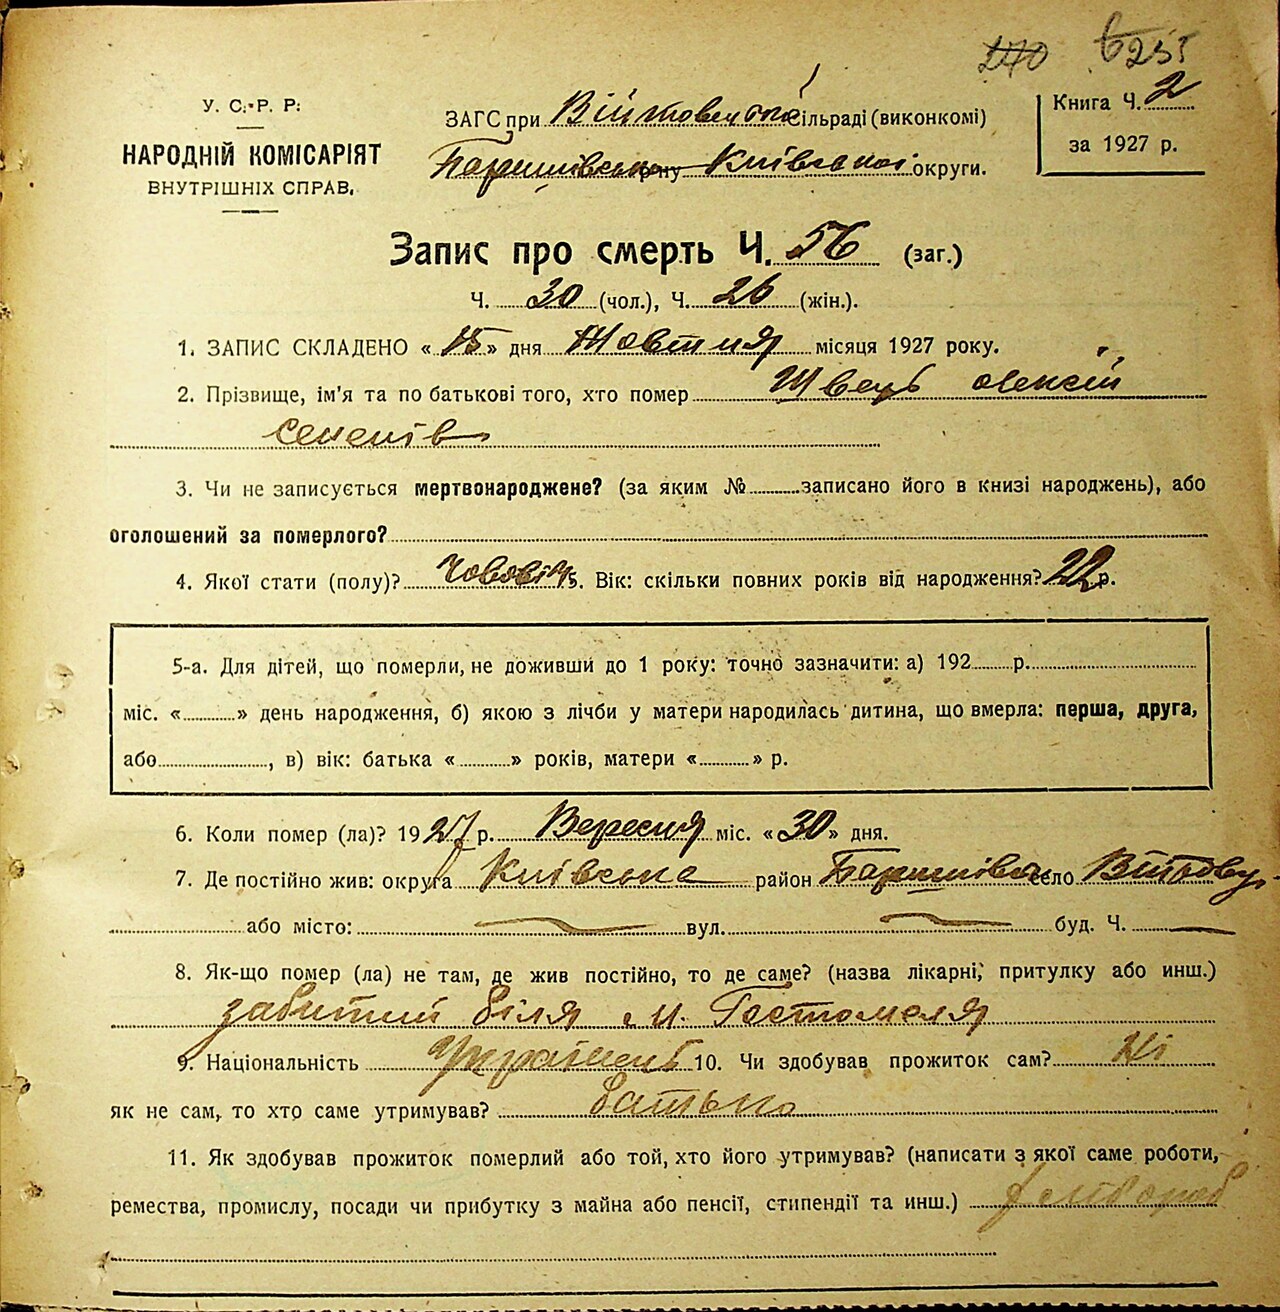 270 6255
У. С. Р. Р.
НАРОДНІЙ КОМІСАРІЯТ
ВНУТРІШНІХ СПРАВ.
ЗАГС при Війтовецькій сільраді (виконкомі)
Баришівсько ну Київської округи.
Книга Ч. 2
за 1927 р.
Запис про смерть Ч. 56 (заг.)
Ч. 30 (чол.), Ч. 26 (жін.).
1. ЗАПИС СКЛАДЕНО « 15 » дня Жовтня місяця 1927 року.
2. Прізвище, ім'я та по батькові того, хто помер Швець Олексій
Семенів
3. Чи не записується мертвонароджене? (за яким № записано його в книзі народжень), або
оголошений за померлого?
4. Якої стати (полу)? Чоловіч 5. Вік: скільки повних років від народження? 22 р.
5-а. Для дітей, що померли, не доживши до 1 року: точно зазначити: а) 192 р.
міс. « » день народження, б) якою з лічби у матери народилась дитина, що вмерла: перша, друга,
або , в) вік: батька « » років, матери « » р.
6. Коли помер (ла)? 1927 р. Вересня міс. « 30 » дня.
7. Де постійно жив: округа Київська район Баришівск село Війтовці
або місто: вул. буд. Ч.
8. Як-що помер (ла) не там, де жив постійно, то де саме? (назва лікарні, притулку або инш.)
забитий біля м. Гостомеля
9. Національність Українець 10. Чи здобував прожиток сам? Ні
як не сам, то хто саме утримував? батько
11. Як здобував прожиток померлий або той, хто його утримував? (написати з якої саме роботи,
ремества, промислу, посади чи прибутку з майна або пенсії, стипендії та инш.) хлібороб